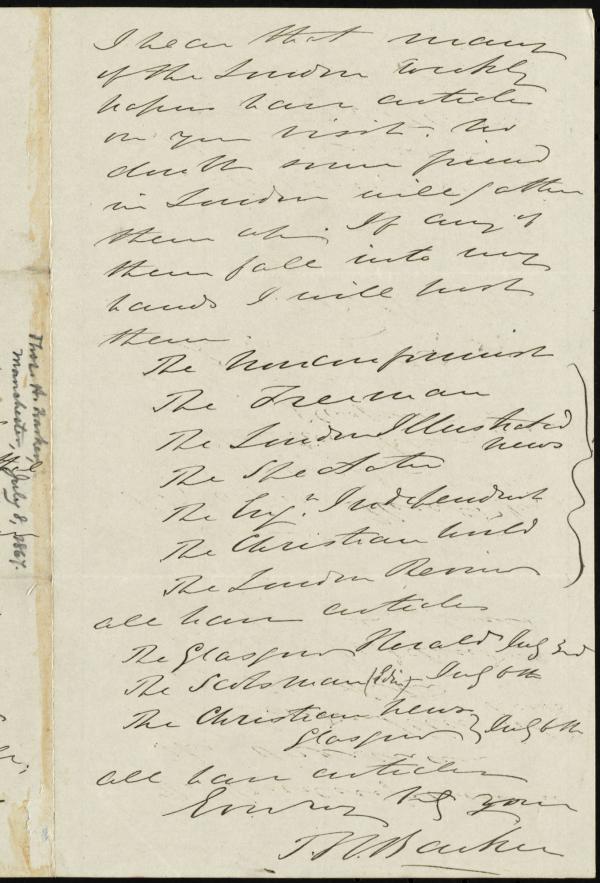 I hear that many
of the London weekly
papers have articles
on your visit. No
doubt some friend
in London will gather
them up. If any of
them fall into my
hands I will post
them.
The Nonconformist
The Freeman
The London Illustrated
news
The Spectator
The Eng.h Independent
The Christian World
The London Review
all have articles
The Glasgow Herald July 3rd
The Scotsman (Edin) July 6th
The Christian News
Glasgow } July 6th
all have articles
yours
T. H. Barker
Thos. H. Barker,
Manchester, July 8, 1867.